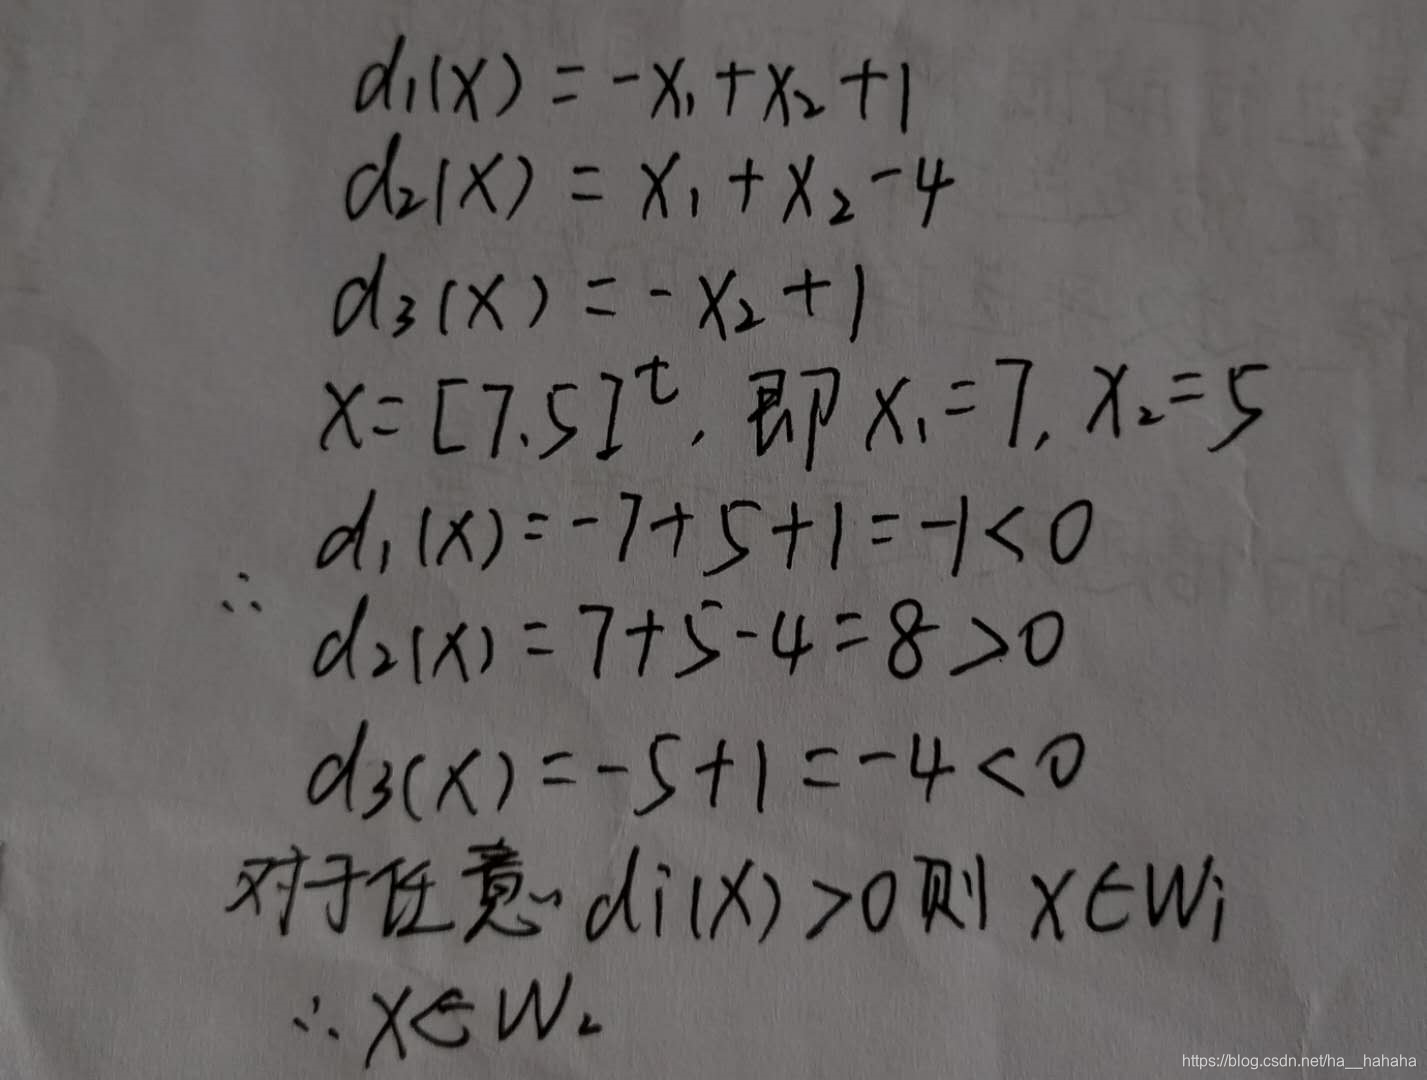 d₁(X) = -X₁+X₂+1
d₂(X) = X₁+X₂-4
d₃(X) = -X₂+1
X=[7.5]ᵗ, 即X₁=7, X₂=5
d₁(X)=-7+5+1=-1<0
∴
d₂(X)=7+5-4=8>0
d₃(X)=-5+1=-4<0
对于任意di(X)>0则 X∈Wi
∴X∈W₂
https://blog.csdn.net/ha__hahaha